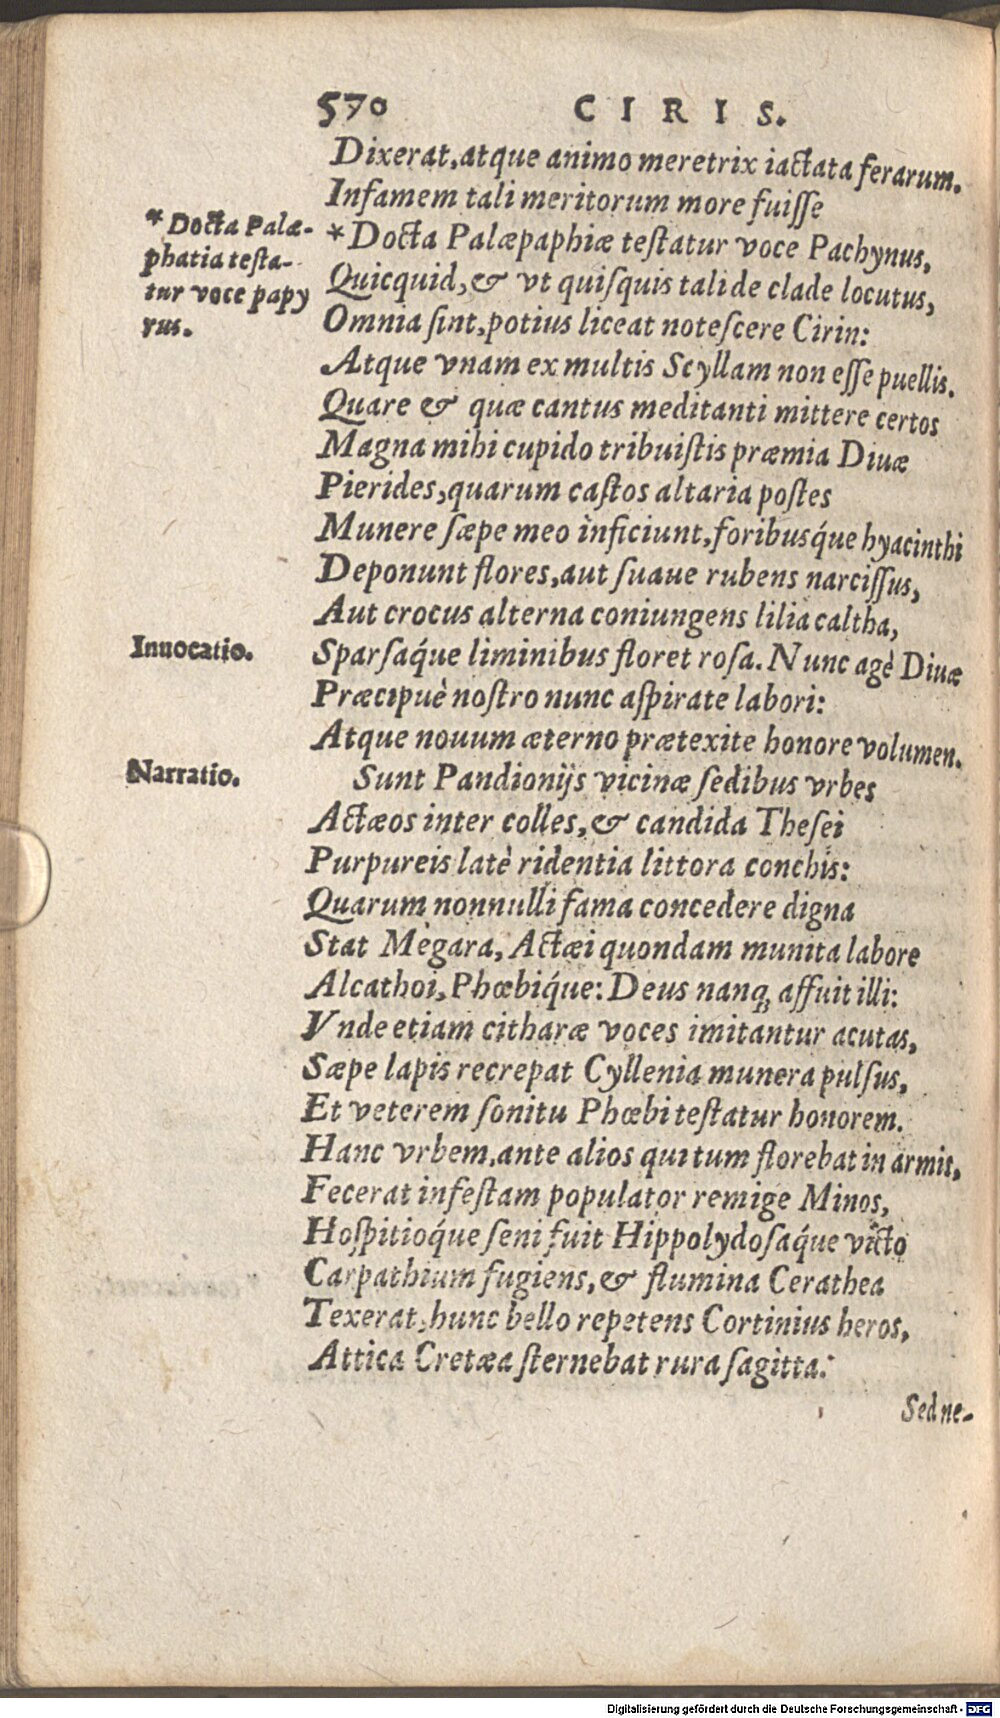 570 CIRIS.
Dixerat, atque animo meretrix iactata ferarum.
Infamem tali meritorum more fuiſſe
*Docta Palæpaphiæ teſtatur voce Pachynus,
Quicquid, & vt quiſquis tali de clade locutus,
Omnia ſint, potius liceat noteſcere Cirin:
Atque vnam ex multis Scyllam non eſſe puellis.
Quare & quæ cantus meditanti mittere certos
Magna mihi cupido tribuiſtis præmia Diuæ
Pierides, quarum caſtos altaria poſtes
Munere ſæpe meo inficiunt, foribusq́ue hyacinthi
Deponunt flores, aut ſuaue rubens narciſſus,
Aut crocus alterna coniungens lilia caltha,
Sparſaq́ue liminibus floret roſa. Nunc agè Diuæ
Præcipuè noſtro nunc aſpirate labori:
Atque nouum æterno prætexite honore volumen.
Sunt Pandionijs vicinæ ſedibus vrbes
Actæos inter colles, & candida Theſei
Purpureis latè ridentia littora conchis:
Quarum non nulli fama concedere digna
Stat Megara, Actæi quondam munita labore
Alcathoi, Phœbiq́ue: Deus nanq; affuit illi:
Vnde etiam citharæ voces imitantur acutas,
Sæpe lapis recrepat Cyllenia munera pulſus,
Et veterem ſonitu Phœbi teſtatur honorem.
Hanc vrbem, ante alios qui tum florebat in armis,
Fecerat infeſtam populator remige Minos,
Hoſpitioq́ue ſeni fuit Hippolydoſaq́ue victo
Carpathium fugiens, & flumina Cerathea
Texerat, hunc bello repetens Cortinius heros,
Attica Cretæa ſternebat rura ſagitta:
Sed ne-
* Docta Palæ-
phatia teſta-
tur voce papy
rus.
Inuocatio.
Narratio.
Digitalisierung gefördert durch die Deutsche Forschungsgemeinschaft - DFG